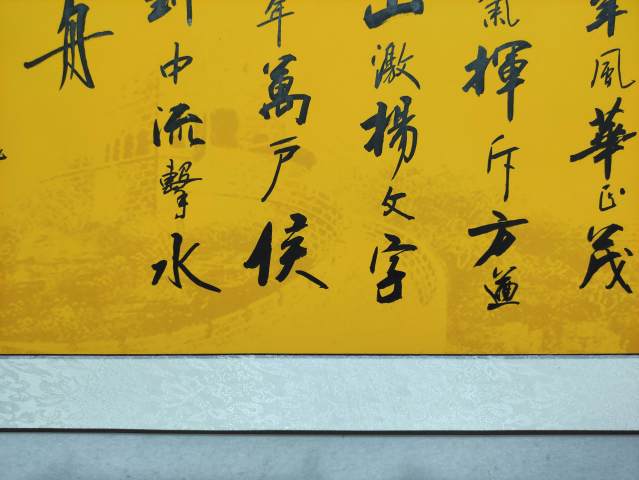 年風華正茂
氣揮斥方遒
山激楊文字
年萬户侯
到中流擊水
舟